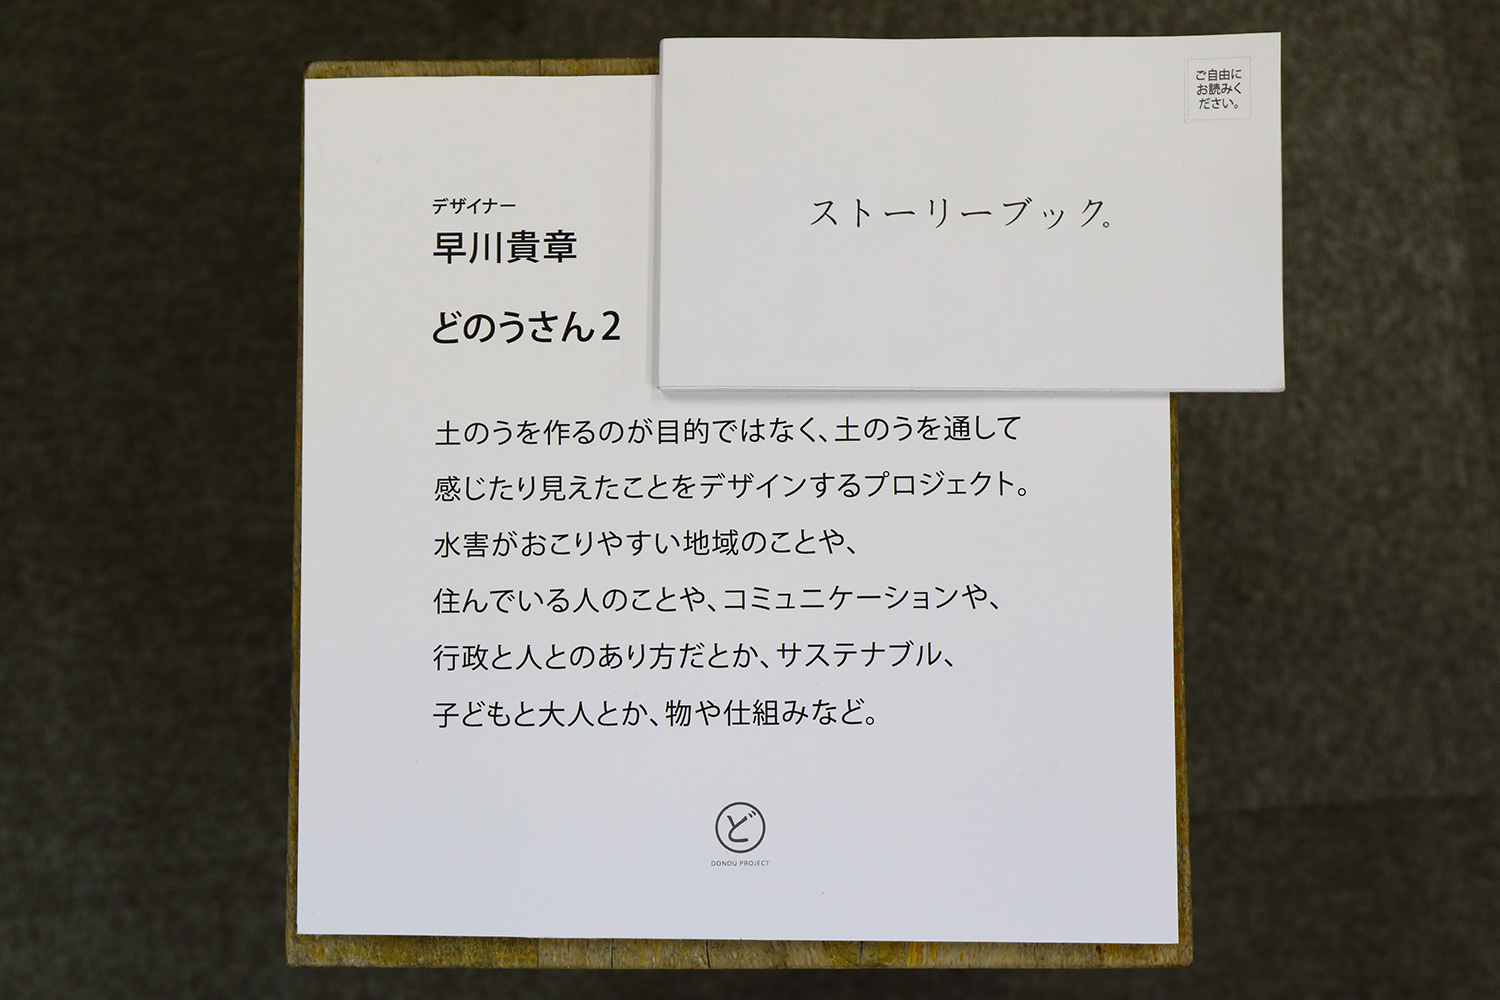 ご自由に
お読みく
ださい。
ストーリーブック。
デザイナー
早川貴章
どのうさん2
土のうを作るのが目的ではなく、土のうを通して
感じたり見えたことをデザインするプロジェクト。
水害がおこりやすい地域のことや、
住んでいる人のことや、コミュニケーションや、
行政と人とのあり方だとか、サステナブル、
子どもと大人とか、物や仕組みなど。
ど
DONOU PROJECT